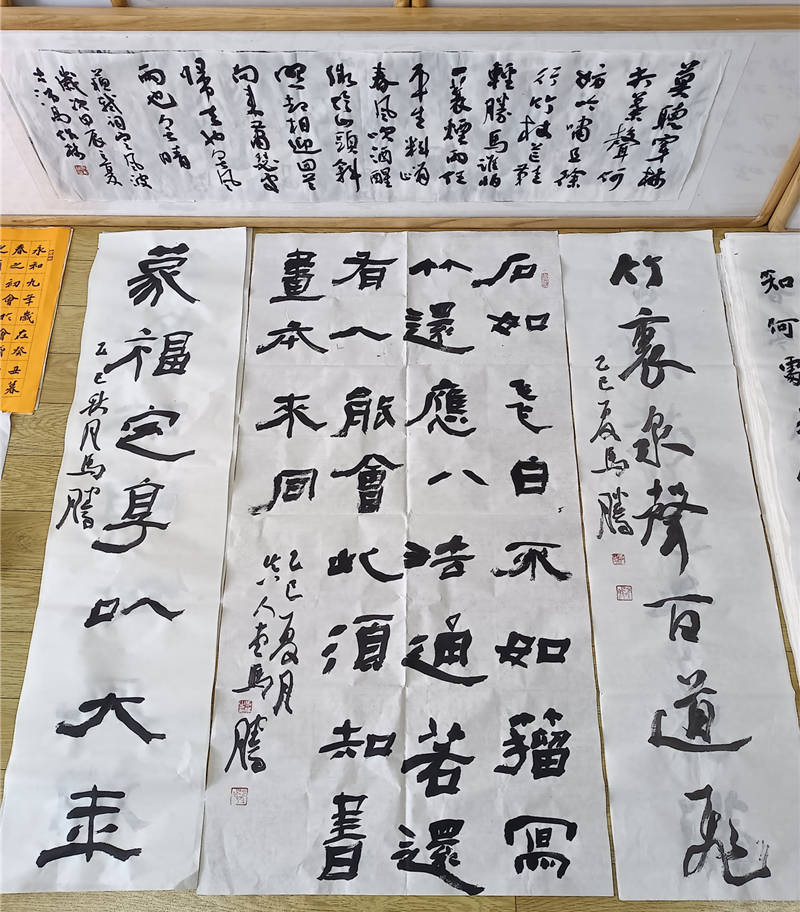 莫聽穿林
打葉聲何
妨吟嘯且徐
行竹杖芒鞋
輕勝馬誰怕
一蓑煙雨任
平生料峭
春風吹酒醒
微冷山頭斜
照却相迎回首
向来蕭瑟處
歸去也無風
雨也無晴
蘇軾詞定風波
歲次甲辰之夏
知何處
竹裏泉聲百道飛
乙巳夏馬騰
石如飞白木如籀寫
竹還應八法通若還
有人能會此須知書
畫本来同
乙巳夏月
馬騰
蒙福定享以大来
乙巳秋月馬騰
永和九年歲在癸丑暮
春之初會於會